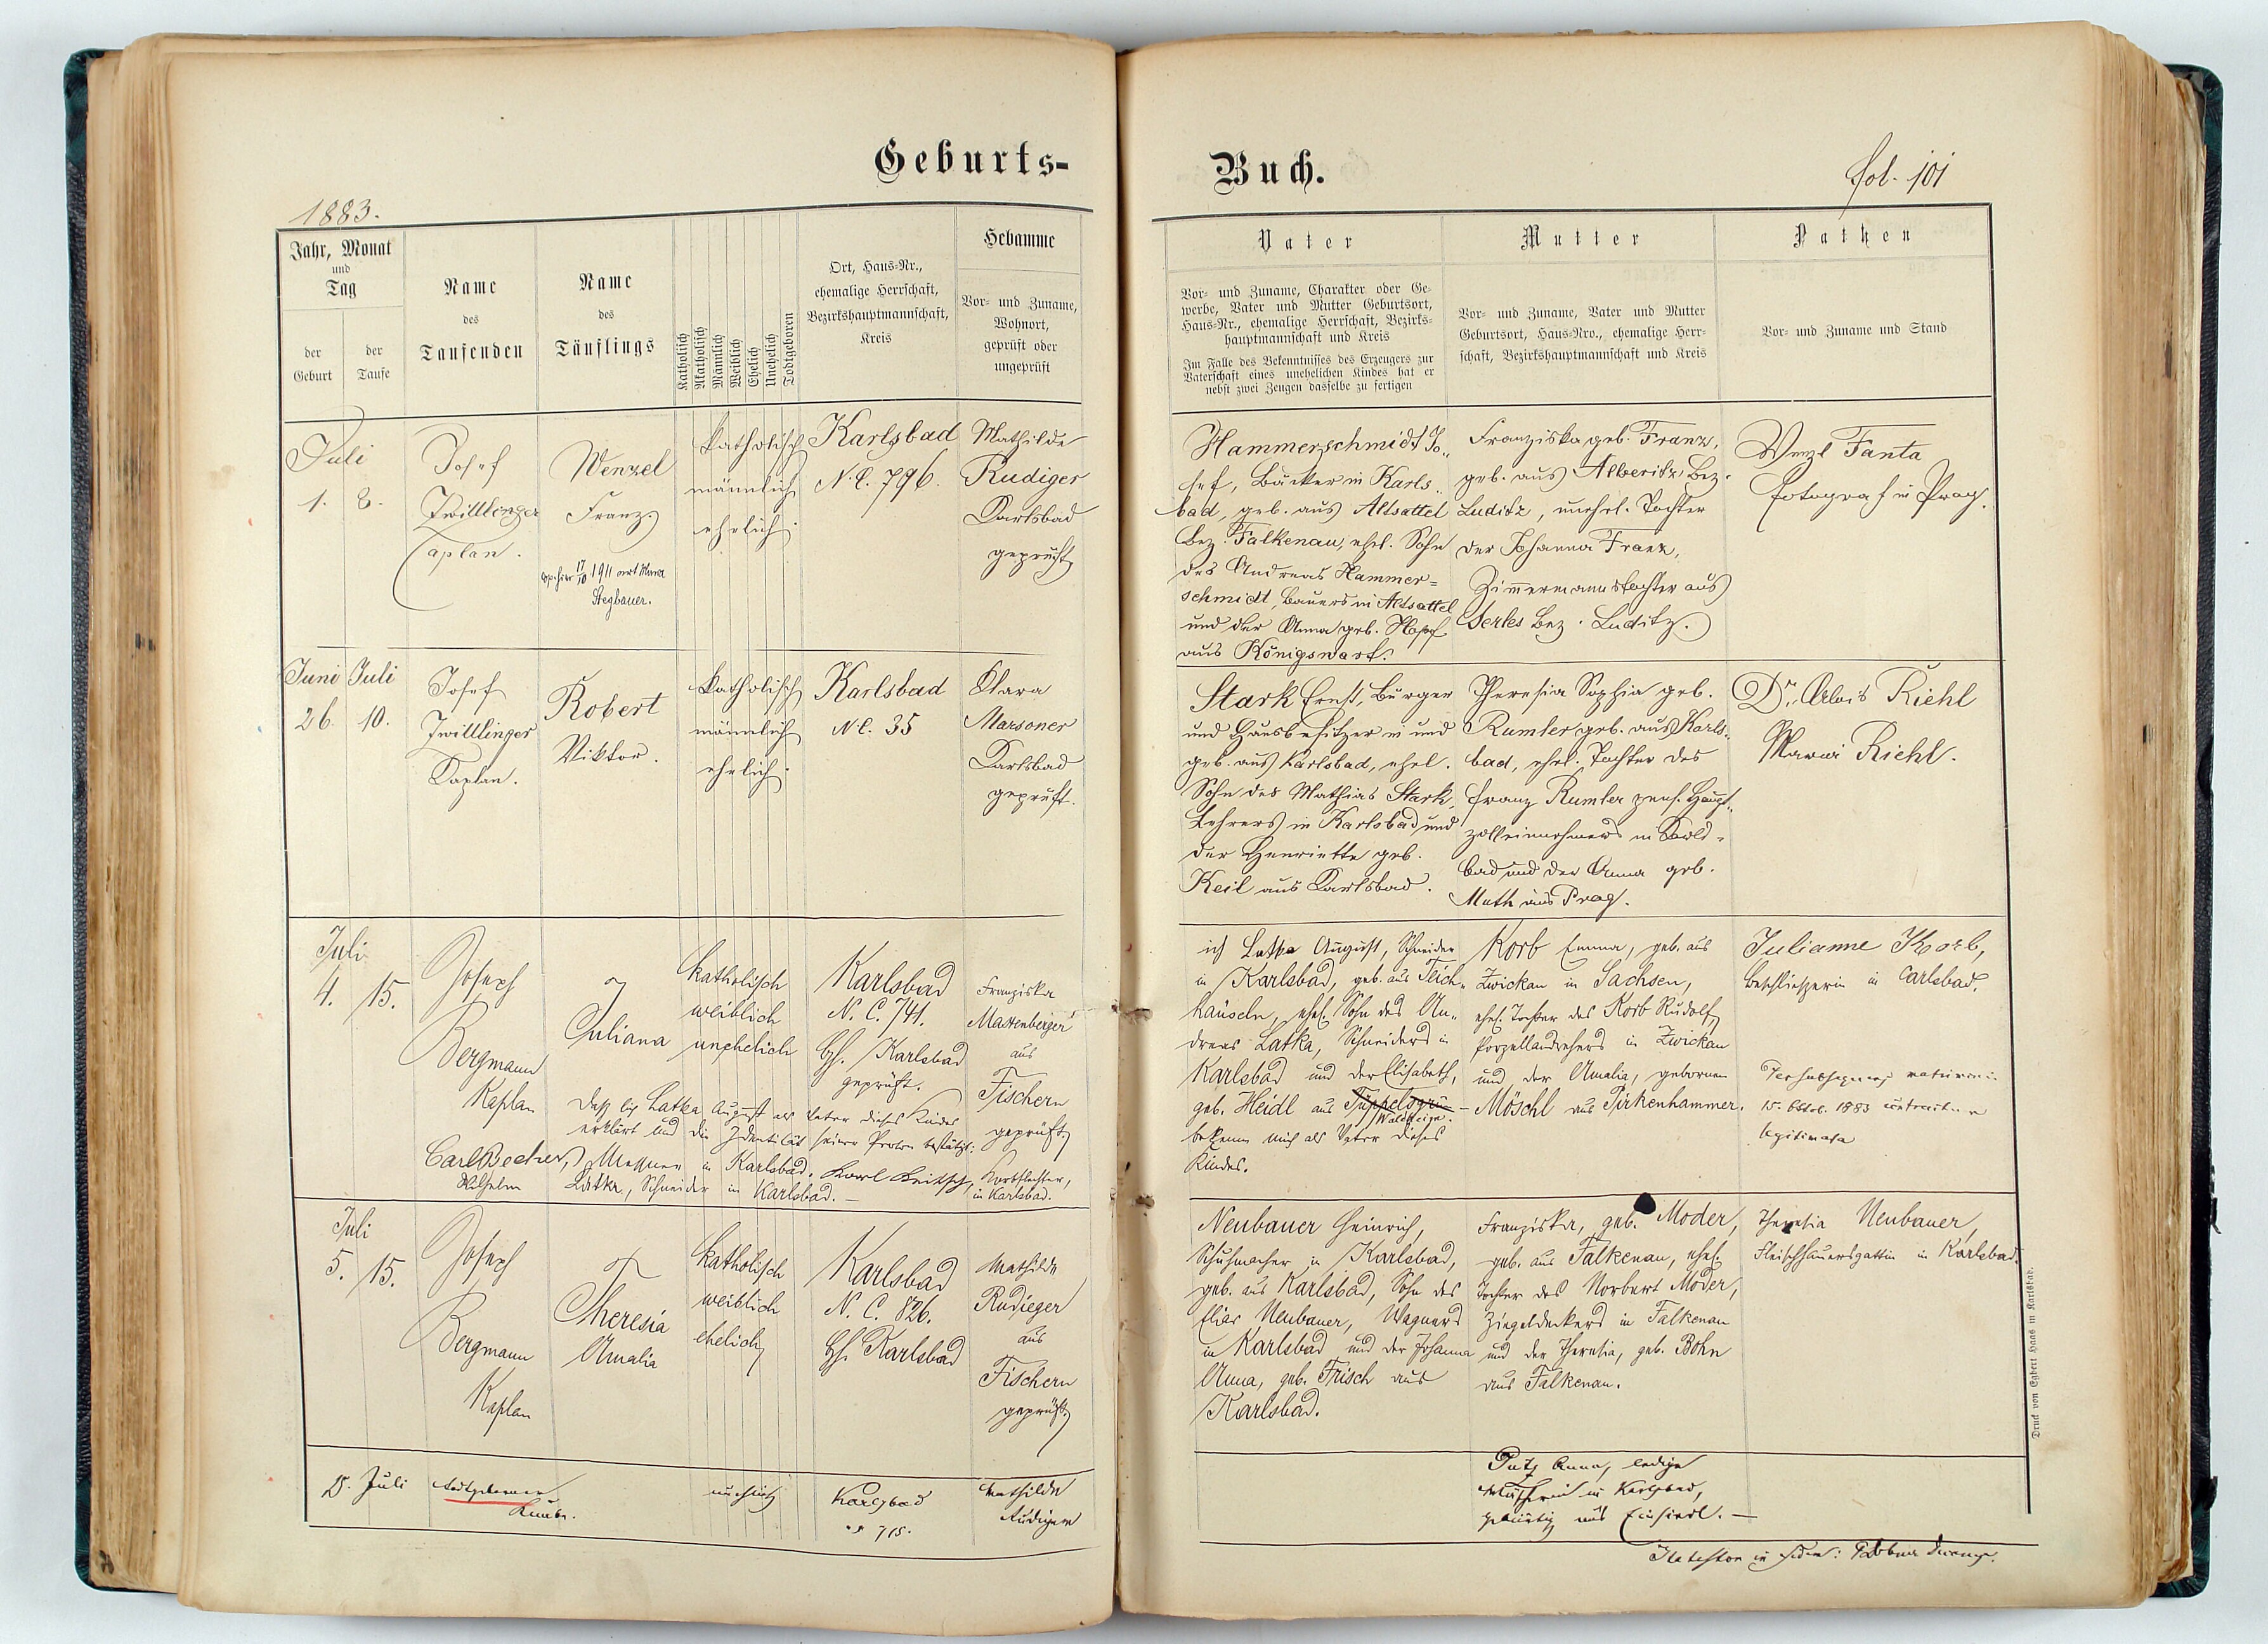 Geburts-
Buch.
fol. 101
1883.
Jahr, Monat
und
Tag
der
Geburt
der
Taufe
Name
des
Taufenden
Name
des
Täuflings
Katholisch
Akatholisch
Männlich
Weiblich
Ehelich
Unehelich
Todtgeboren
Ort, Haus-Nr.,
ehemalige Herrschaft,
Bezirkshauptmannschaft,
Kreis
Hebamme
Vor- und Zuname,
Wohnort,
geprüft oder
ungeprüft
Vater
Vor- und Zuname, Charakter oder Ge-
werbe, Vater und Mutter Geburtsort,
Haus-Nr., ehemalige Herrschaft, Bezirks-
hauptmannschaft und Kreis
Im Falle des Bekenntnisses des Erzeugers zur
Vaterschaft eines unehelichen Kindes hat er
nebst zwei Zeugen dasselbe zu fertigen
Mutter
Vor- und Zuname, Vater und Mutter
Geburtsort, Haus-Nro., ehemalige Herr-
schaft, Bezirkshauptmannschaft und Kreis
Pathen
Vor- und Zuname und Stand
Juli
1. 8.
Josef
Zwilllinger
Caplan.
Wenzel
Franz
17/10 1911 mit Maria
Stegbauer.
katholisch
männlich
ehelich.
Karlsbad
N.C. 796.
Mathilde
Rudiger
Karlsbad
geprüft
Hammerschmidt Jo-
sef, Bäcker in Karls-
bad, geb. aus Altsattel
Bez. Falkenau, ehel. Sohn
des Andreas Hammer=
schmidt, Bauers in Altsattel
und der Anna geb. Hopf
aus Königswart.
Franziska geb. Franz,
geb. aus Alberitz Bez.
Luditz, unehel. Tochter
der Johanna Franz,
Zimmermannstochter aus
Serles Bez. Luditz.
Wenzl Fanta
Fotograf in Prag.
Juni Juli
26. 10.
Josef
Zwilllinger
Kaplan.
Robert
Viktor.
katholisch
männlich
ehelich.
Karlsbad
N.C. 35
Klara
Marsoner
Karlsbad
geprüft.
Stark Ernst, Bürger
und Hausbesitzer in und
geb. aus Karlsbad, ehel.
Sohn des Mathias Stark,
Lehrers in Karlsbad und
der Henriette geb.
Keil aus Karlsbad.
Theresia Sophia geb.
Rumler geb. aus Karls-
bad, ehel. Tochter des
Franz Rumler pens. Haupt-
zolleinnehmers in Karls-
bad und der Anna geb.
Muth aus Prag.
Dr. Alois Riehl
Maria Riehl.
Juli
4. 15.
Joseph
Bergmann
Kaplan
Juliana
katholisch
weiblich
unehelich
Karlsbad
N. C. 741.
Bh. Karlsbad
geprüft.
Franziska
Mattenberger
aus
Fischern
geprüft
Daß sich Latka August als Vater dieses Kindes
erklärt und die Identität seiner Person bestätigt:
Carl Becher, Meßner in Karlsbad. Karl Keitsch, Korbflechter,
in Karlsbad.
Wilhelm Latka, Schneider in Karlsbad. —
ich Latka August, Schneider
in Karlsbad, geb. aus Teich-
häuseln, ehel. Sohn des An-
dreas Latka, Schneiders in
Karlsbad und der Elisabeth,
geb. Heidl aus Tüppelsgrün –
bekenne mich als Vater dieses
Kindes.
Korb Emma, geb. aus
Zwickau in Sachsen,
ehel. Tochter des Korb Rudolf,
Porzellandrehers in Zwickau
und der Amalia, gebornen
Möschl aus Pirkenhammer.
Julianne Korb,
Beschließerin in Carlsbad.
Per subsequens matrimonium
15. Oktob. 1883
legitimata
Juli
5. 15.
Joseph
Bergmann
Kaplan
Theresia
Amalia
katholisch
weiblich
ehelich
Karlsbad
N. C. 826.
Bh. Karlsbad
Mathilde
Rudieger
aus
Fischern
geprüft
Neubauer Heinrich,
Schuhmacher in Karlsbad,
geb. aus Karlsbad, Sohn des
Elias Neubauer, Wagners
in Karlsbad und der Johanna
Anna, geb. Frisch aus
Karlsbad.
Franziska, geb. Moder,
geb. aus Falkenau, ehel.
Tochter des Norbert Moder,
Ziegeldeckers in Falkenau
und der Theresia, geb. Bohn
aus Falkenau.
Theresia Neubauer,
Fleischhauersgattin in Karlsbad.
15. Juli
Todtgeborener
Knabe.
unehelich
Karlsbad
715.
Mathilde
Rudiger
Putz Anna, ledige
in Karlsbad,
gebürtig aus Einsiedl. —
Druck von Egbert Haas in Karlsbad.